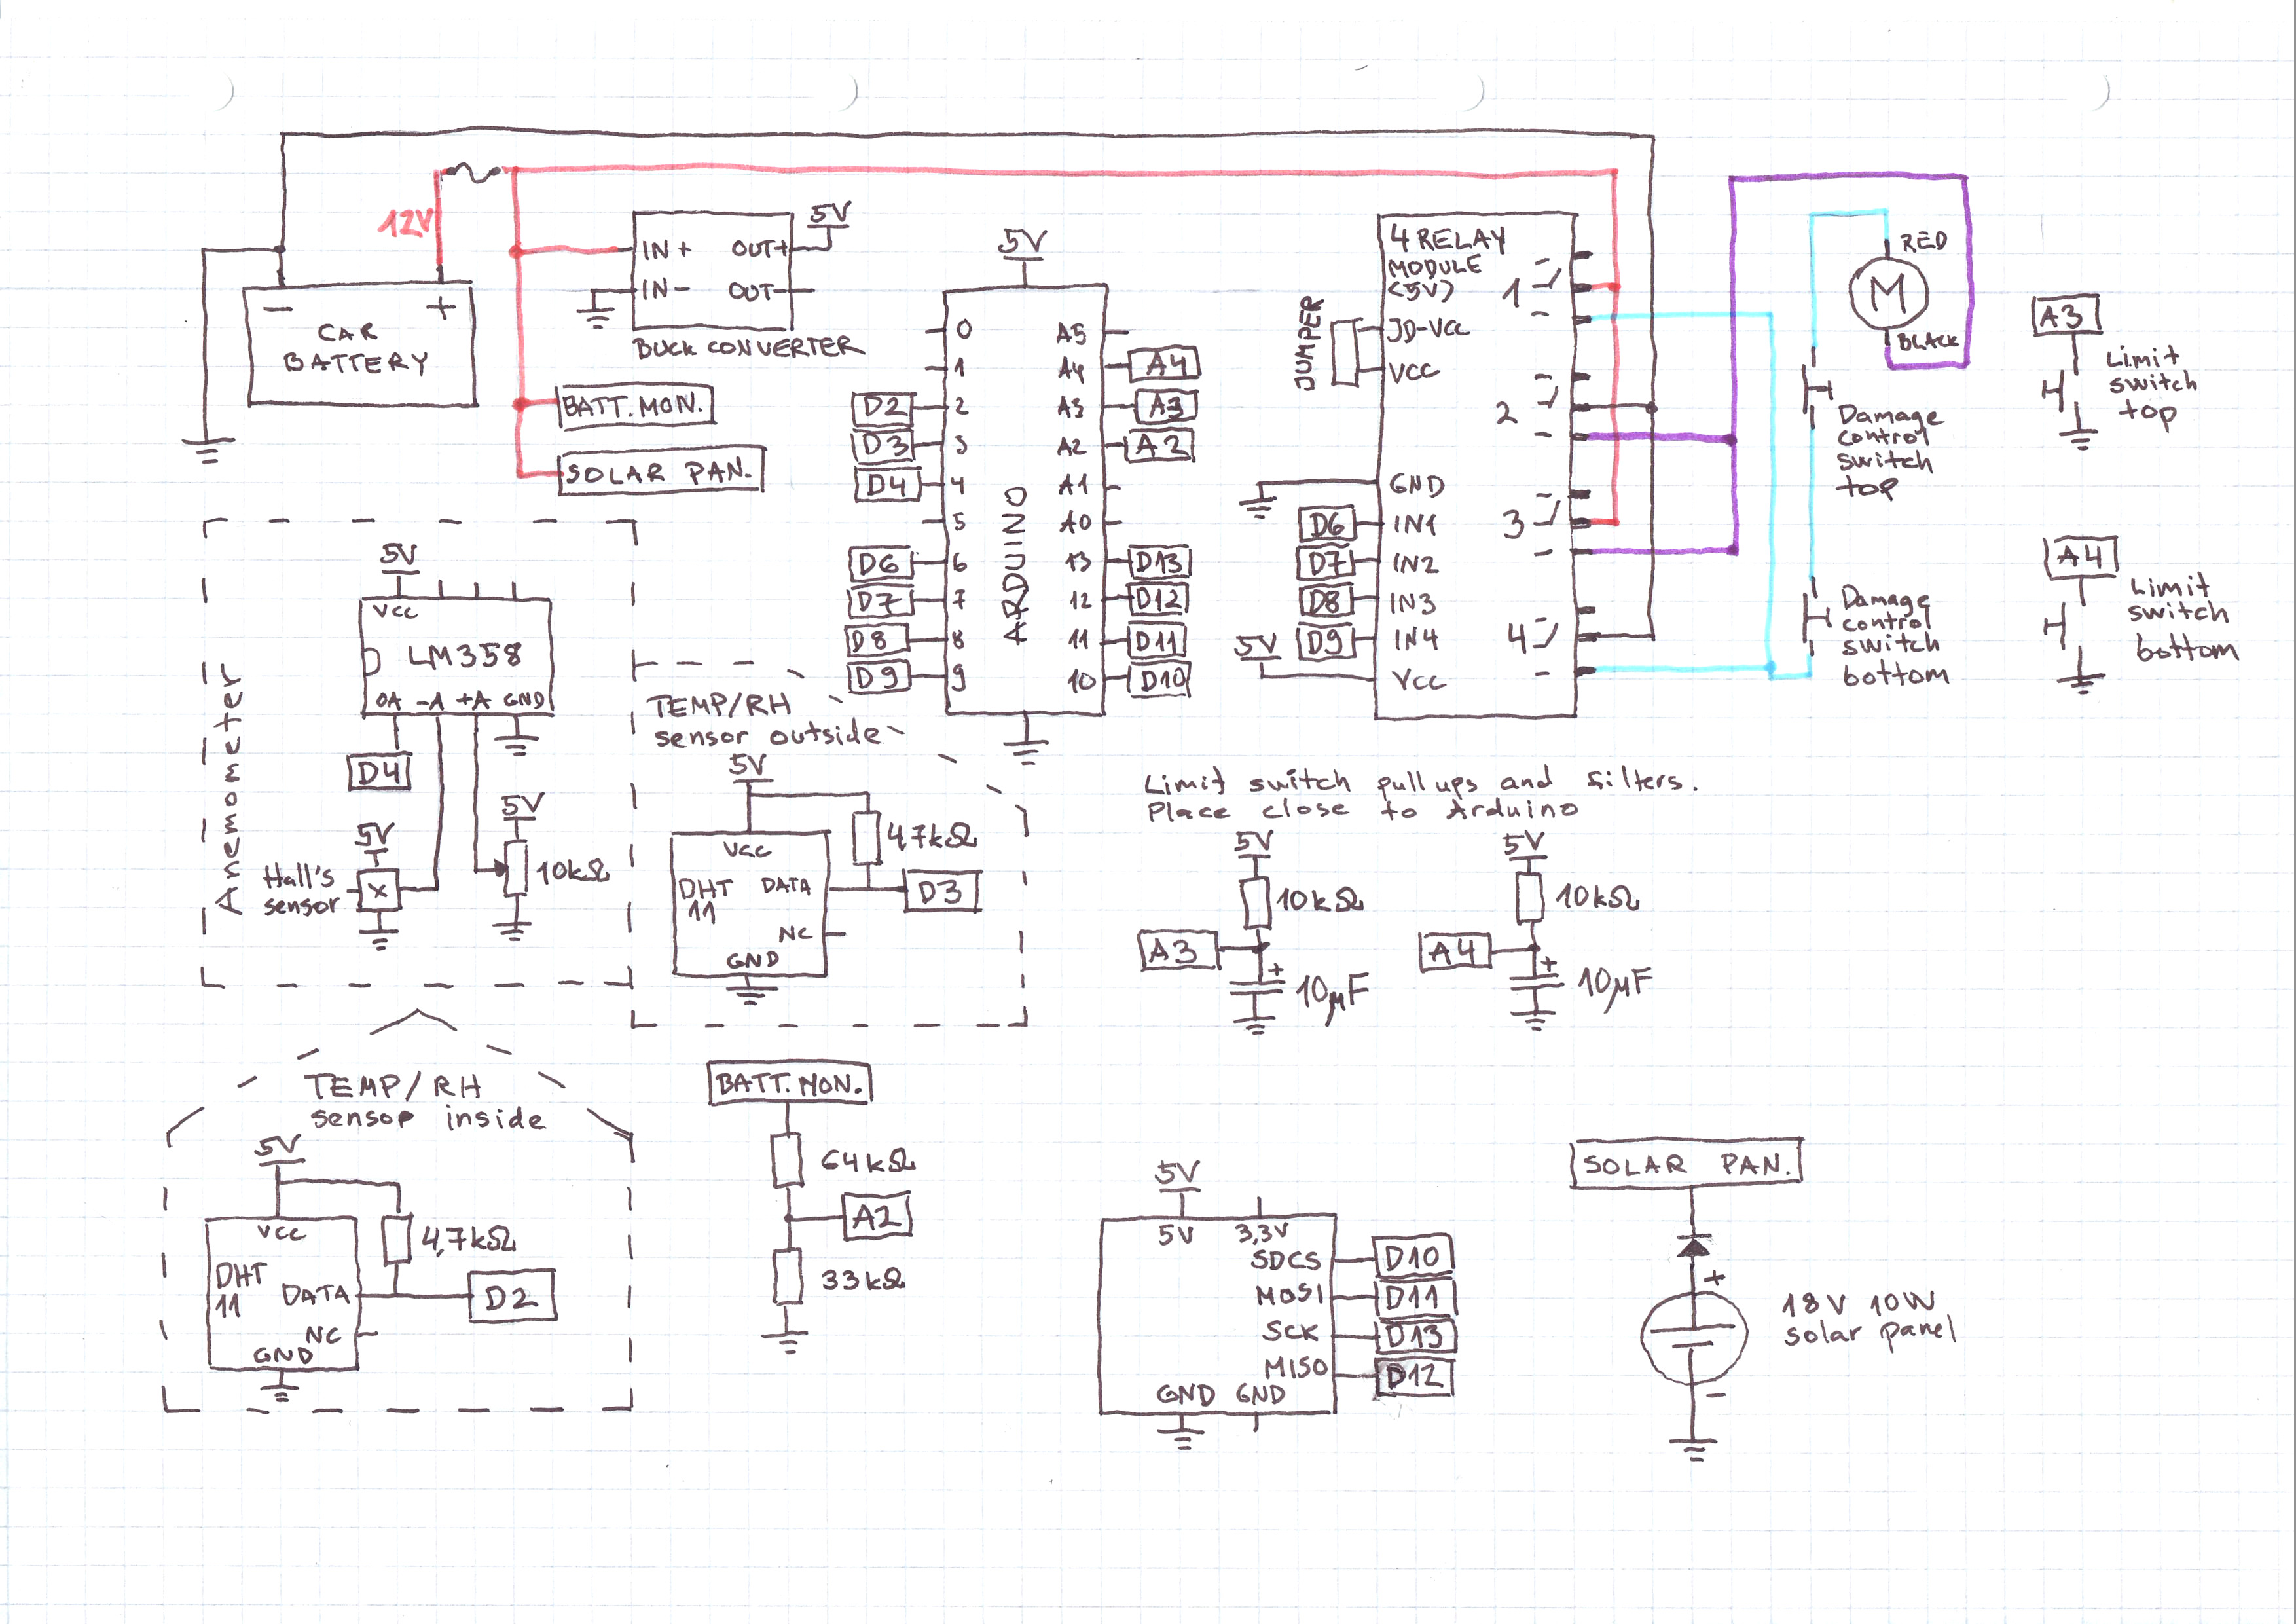 12V
-
+
CAR
BATTERY
IN +
OUT+
5V
IN -
OUT-
BUCK CONVERTER
BATT. MON.
SOLAR PAN.
5V
ARDUINO
0
1
D2 2
D3 3
D4 4
5
D6 6
D7 7
D8 8
D9 9
A5
A4 A4
A3 A3
A2 A2
A1
A0
13 D13
12 D12
11 D11
10 D10
4 RELAY
MODULE
(5V)
JUMPER
JD-VCC
VCC
GND
D6 IN1
D7 IN2
D8 IN3
D9 IN4
5V
VCC
1
2
3
4
RED
M
BLACK
Damage
control
switch
top
Damage
control
switch
bottom
A3
Limit
switch
top
A4
Limit
switch
bottom
Anemometer
5V
VCC
LM358
0A -A +A GND
D4
5V
Hall's
sensor
X
5V
10kΩ
TEMP/RH
sensor outside
5V
VCC
4,7kΩ
DHT
11
DATA
D3
NC
GND
Limit switch pull ups and filters.
Place close to Arduino
5V
10kΩ
A3
+
10μF
5V
10kΩ
A4
+
10μF
TEMP/RH
sensor inside
5V
VCC
4,7kΩ
DHT
11
DATA
D2
NC
GND
BATT. MON.
64kΩ
A2
33kΩ
5V
5V 3,3V
SDCS D10
MOSI D11
SCK D13
MISO D12
GND GND
SOLAR PAN.
+
18V 10W
solar panel
-